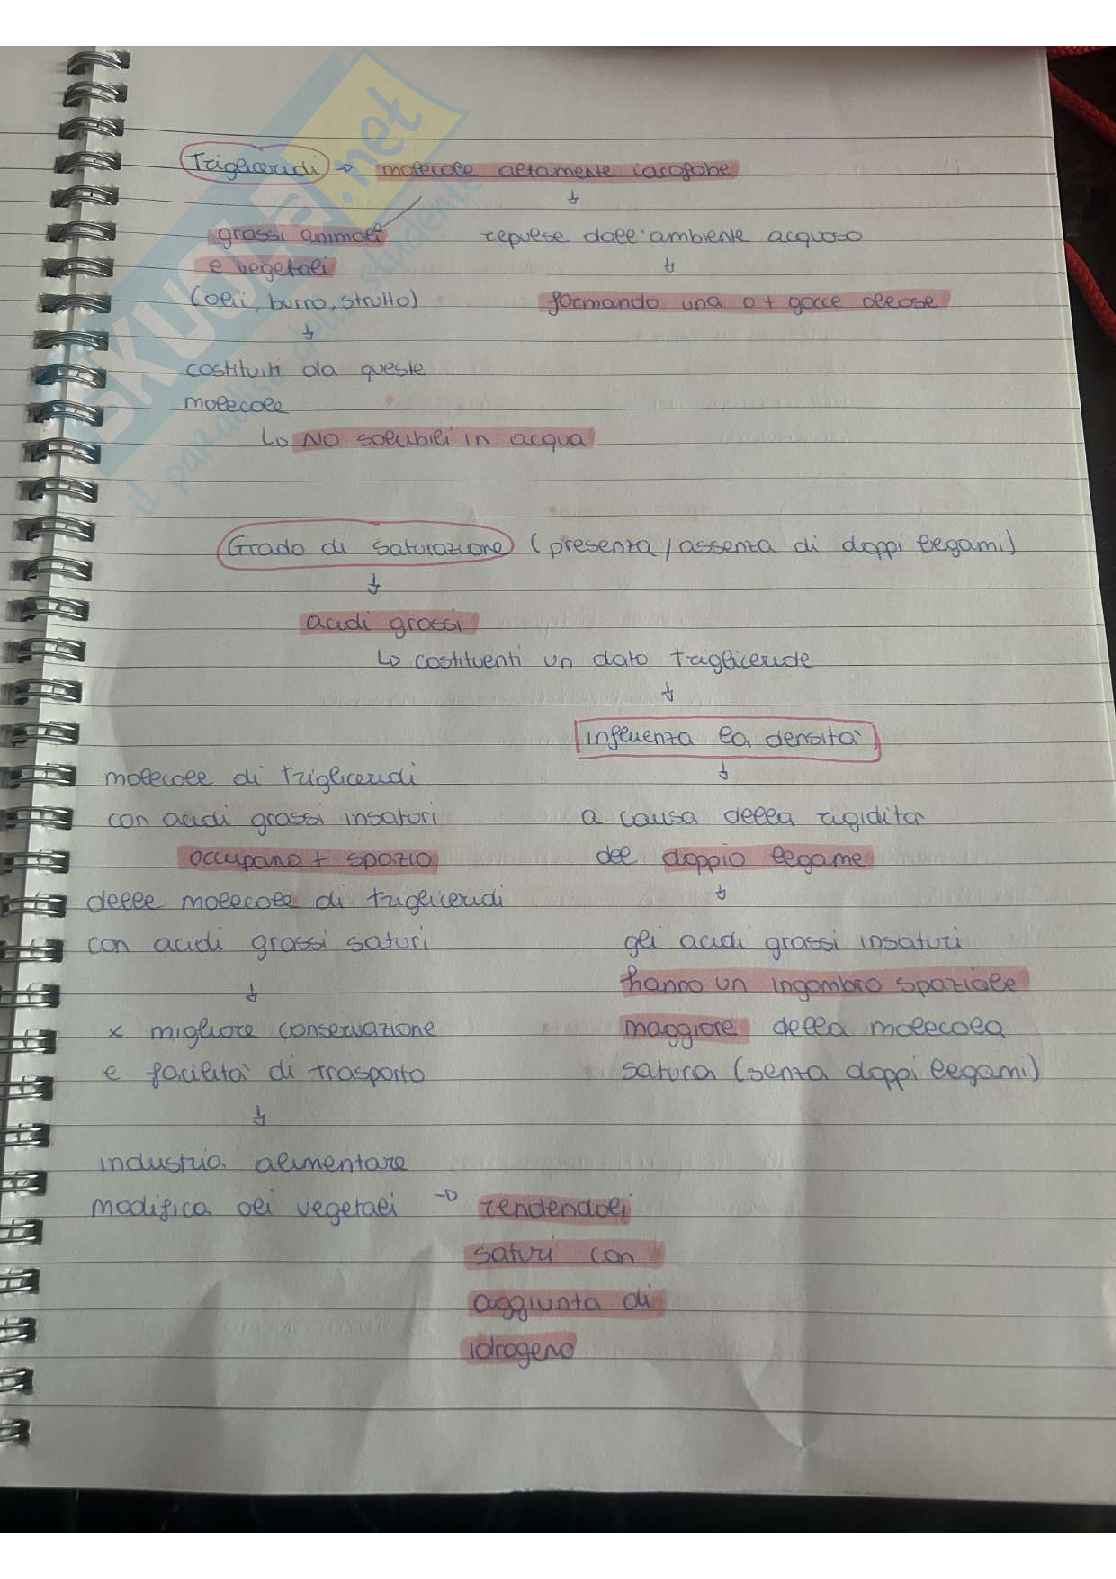 Trigliceridi → molecole altamente idrofobe
↓
grassi animali
e vegetali
(oli, burro, strutto)
↓
costituiti da queste
molecole
↳ NO solubili in acqua
repulse dall'ambiente acquoso
↓
formando una o + gocce oleose
Grado di saturazione (presenza/assenza di doppi legami)
↓
acidi grassi
↳ costituenti un dato trigliceride
↓
influenza la densità
↓
a causa della rigidità
del doppio legame
↓
gli acidi grassi insaturi
hanno un ingombro spaziale
maggiore della molecola
satura (senza doppi legami)
molecole di trigliceridi
con acidi grassi insaturi
occupano + spazio
delle molecole di trigliceridi
con acidi grassi saturi
↓
x migliore conservazione
e facilità di trasporto
↓
industria alimentare
modifica oli vegetali → rendendoli
saturi con
aggiunta di
idrogeno
SKUOLA.net